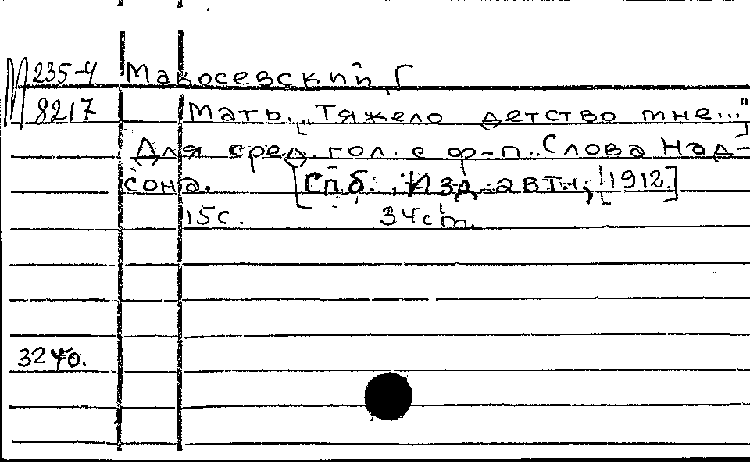 М 235-4 Макосевский, Г
8217 Мать. ["Тяжело детство мне..."]
Для сред. гол. с ф-п. Слова Над-
сона. [Спб., Изд. авт., 1912.]
15с. 34cm.
3240.